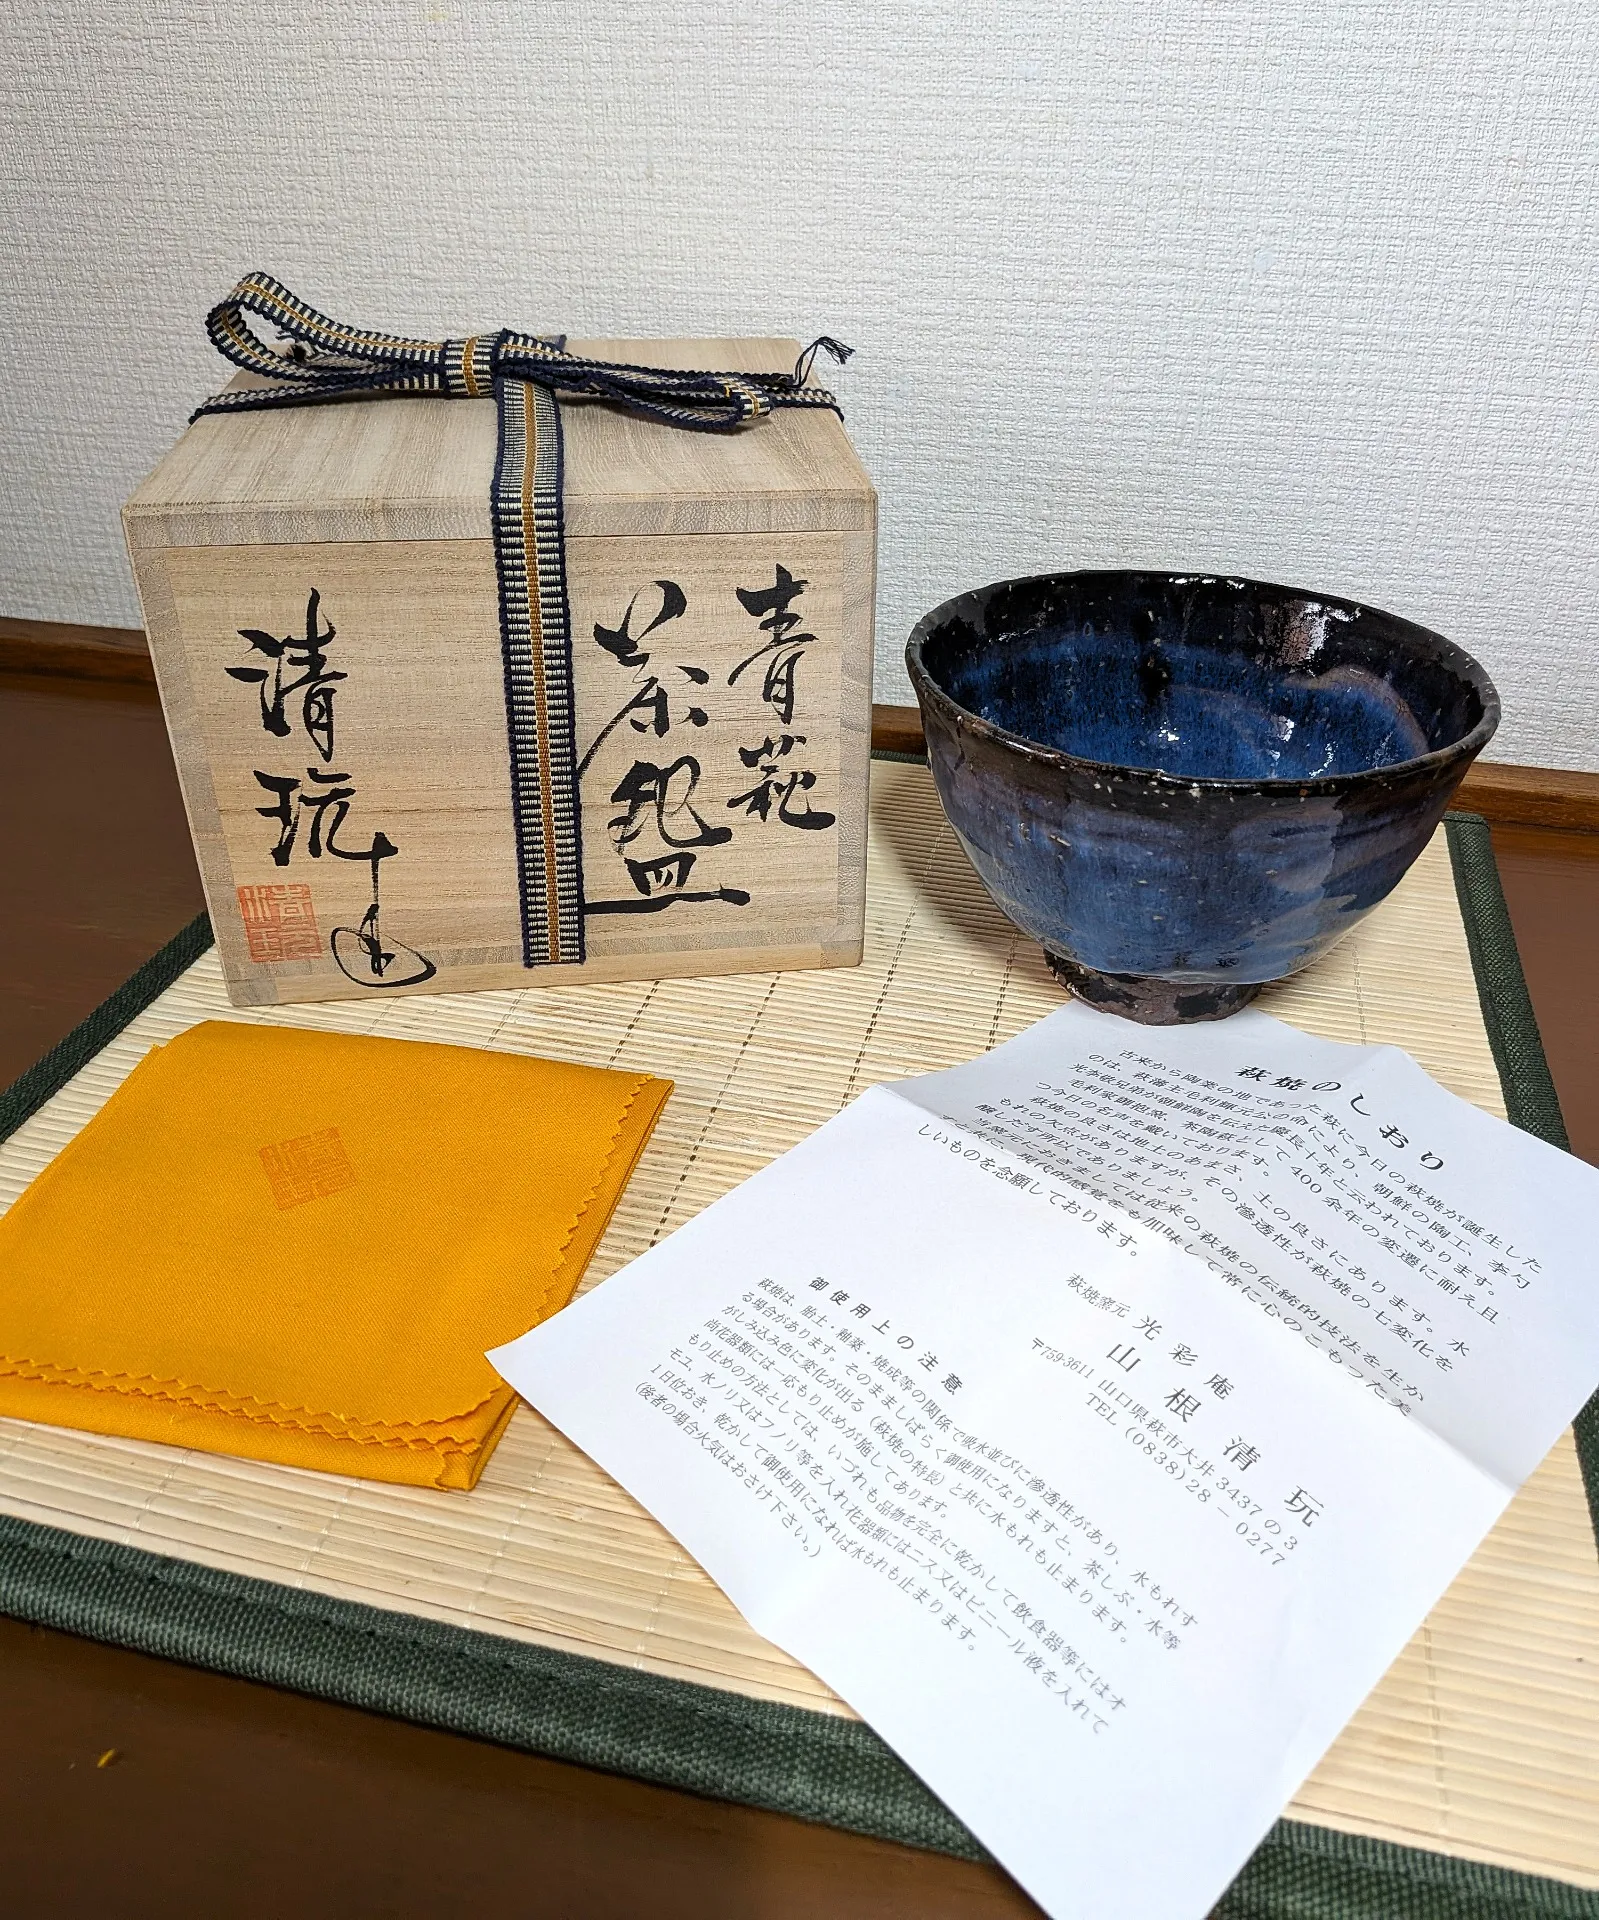 青萩
茶盌
清玩
萩焼のしおり
古来から陶業の地であった萩に今日の萩焼が誕生した
のは、萩藩主毛利輝元公の命により、朝鮮の陶工、李勺
光李敬兄弟が朝鮮陶を伝えた慶長十年と云われております。
毛利家御抱窯、茶陶萩として400余年の変遷に耐え且
つ今日の名声を戴いております。
萩焼の良さは地土のあまさ、土の良さにあります。水
もれの欠点がありますが、その滲透性が萩焼の七変化を
醸しだす所以でありましょう。
当窯元におきましては従来の萩焼の伝統的技法を生か
すと共に、現代的感覚をも加味して常に心のこもった美
しいものを念願しております。
萩焼窯元 光彩庵
山根清玩
〒759-3611 山口県萩市大井3437の3
TEL (0838) 28－0277
御使用上の注意
萩焼は、胎土・釉薬・焼成等の関係で吸水並びに滲透性があり、水もれす
る場合があります。そのまましばらく御使用になりますと、茶しぶ・水等
がしみ込み色に変化が出る（萩焼の特長）と共に水もれも止まります。
尚花器類には一応もり止めが施してあります。
もり止めの方法としては、いづれも品物を完全に乾かして飲食器等にはオ
モユ、水ノリ又はフノリ等を入れ花器類にはニス又はビニール液を入れて
1日位おき、乾かして御使用になれば水もれも止まります。
（後者の場合火気はおさけ下さい。）